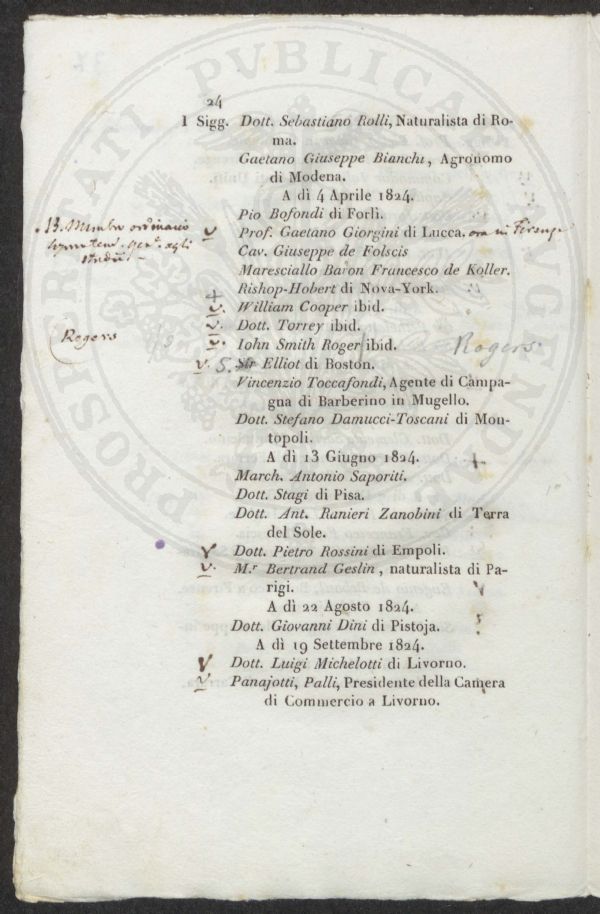 24
I Sigg. Dott. Sebastiano Rolli, Naturalista di Ro-
ma.
Gaetano Giuseppe Bianchi, Agronomo
di Modena.
A dì 4 Aprile 1824.
Pio Bofondi di Forlì.
Prof. Gaetano Giorgini di Lucca. ora in Firenze
13. Membro ordinario
agli
studii
Cav. Giuseppe de Folscis
Maresciallo Baron Francesco de Koller.
Rishop-Hobert di Nova-York.
William Cooper ibid.
Dott. Torrey ibid.
Iohn Smith Roger ibid. Rogers
Rogers
S. Sir Elliot di Boston.
Vincenzio Toccafondi, Agente di Campa-
gna di Barberino in Mugello.
Dott. Stefano Damucci-Toscani di Mon-
topoli.
A dì 13 Giugno 1824.
March. Antonio Saporiti.
Dott. Stagi di Pisa.
Dott. Ant. Ranieri Zanobini di Terra
del Sole.
Dott. Pietro Rossini di Empoli.
M.r Bertrand Geslin, naturalista di Pa-
rigi.
A dì 22 Agosto 1824.
Dott. Giovanni Dini di Pistoja.
A dì 19 Settembre 1824.
Dott. Luigi Michelotti di Livorno.
Panajotti, Palli, Presidente della Camera
di Commercio a Livorno.
PROSPERITATI PVBLICAE AVGENDAE